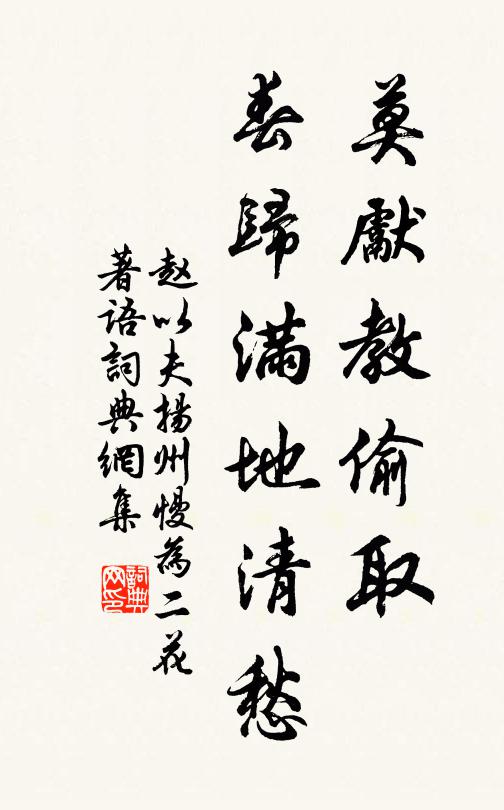 莫厭教偷取
春歸滿地清愁
赵以夫揚州慢為二花
著語詞典網集
詞典网印